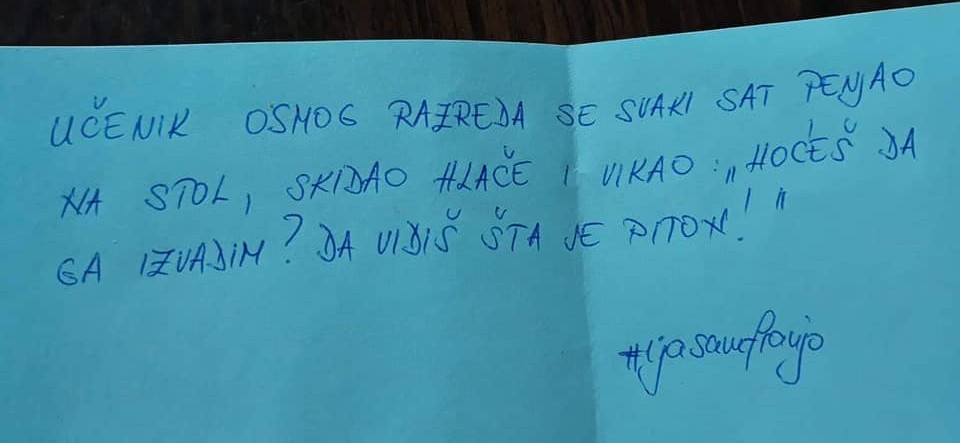 UČENIK OSMOG RAZREDA SE SVAKI SAT PENJAO
NA STOL, SKIDAO HLAČE I VIKAO: „HOĆEŠ DA
GA IZVADIM? DA VIDIŠ ŠTA JE PITON!"
#ijasamfranjo